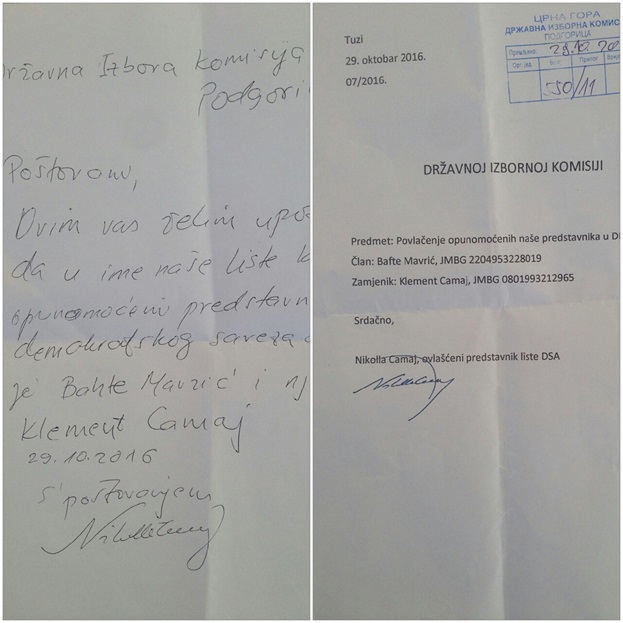 Državna Izbora komisija
Podgori
Poštovani,
Ovim vas želim upoz
da u ime naše liste
opunomoćeni predstavn
demokratskog saveza
je Bahte Mavrić i nj
Klement Camaj
29.10.2016
S' poštovanjem
Tuzi
29. oktobar 2016.
07/2016.
ЦРНА ГОРА
ДРЖАВНА ИЗБОРНА КОМИС
ПОДГОРИЦА
Примљено: 29.10 20
Орг. јед. Број Прилог
550/11
DRŽAVNOJ IZBORNOJ KOMISIJI
Predmet: Povlačenje opunomoćenih naše predstavnika u D
Član: Bafte Mavrić, JMBG 2204953228019
Zamjenik: Klement Camaj, JMBG 0801993212965
Srdačno,
Nikolla Camaj, ovlašćeni predstavnik liste DSA